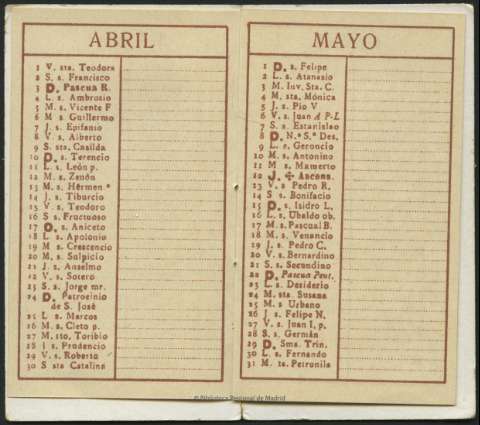 ABRIL
1 V. sta. Teodora
2 S. s. Francisco
3 D. Pascua R.
4 L. s. Ambrosio
5 M. s. Vicente F
6 M s. Guillermo
7 J. s. Epifanio
8 V. s. Alberto
9 S. sta. Casilda
10 D. s. Terencio
11 L. s. León p.
12 M. s. Zenón
13 M. s. Hermen º
14 J. s. Tiburcio
15 V. s. Teodoro
16 S s. Fructuoso
17 D. s. Aniceto
18 L. s. Apolonio
19 M s. Crescencio
20 M. s. Sulpicio
21 J. s. Anselmo
22 V. s. Sotero
23 S. s. Jorge mr.
24 D. Patrocinio
de S. José
25 L s. Marcos
26 M. s. Cleto p.
27 M. sto. Toribio
28 J s. Prudencio
29 V. s. Roberto
30 S sta Catalina
MAYO
1 D. s. Felipe
2 L. s. Atanasio
3 M. Inv. Sta. C.
4 M. sta. Mónica
5 J. s. Pío V
6 V. s. Juan A P-L
7 S. s. Estanislao
8 D. N.ª S.ª Des.
9 L. s. Geroncio
10 M. s. Antonino
11 M s. Mamerto
12 J. ✠ Ascens.
13 V. s Pedro R.
14 S s. Bonifacio
15 D. s. Isidro L.
16 L. s. Ubaldo ob.
17 M.s. Pascual B.
18 M. s. Venancio
19 J. s. Pedro C.
20 V. s. Bernardino
21 S. s. Secundino
22 D. Pascua Pent.
23 L. s. Desiderio
24 M. sta Susana
25 M. s Urbano
26 J. s. Felipe N.
27 V. s. Juan I. p.
28 S. s. Germán
29 D. Sma. Trin.
30 L. s. Fernando
31 M. ta. Petronila
© Biblioteca Regional de Madrid